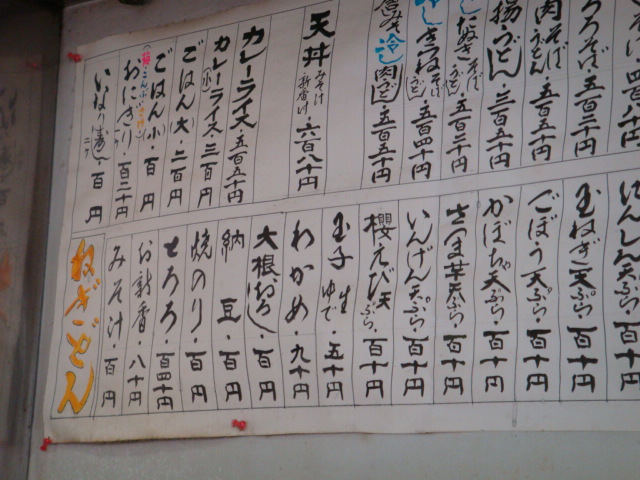 ろそば・五百二十円
肉そば うどん・五百五十円
揚・うどん・三百五十円
たぬき そば うどん・五百三十円
きつね そば うどん・五百四十円
冷し肉うどん・五百五十円
天丼 みそ汁 新香付・六百八十円
カレーライス・五百五十円
カレーライス(小)三百円
ごはん大・二百円
ごはん小・百円
おにぎり・百二十円
いなり寿し 二ケ 百円
にんじん天ぷら・百十円
玉ねぎ天ぷら・百十円
ごぼう天ぷら・百十円
かぼちゃ天ぷら・百十円
さつま芋天ぷら・百十円
いんげん天ぷら・百十円
櫻えび天ぷら・百十円
玉子 生 ゆで・五十円
わかめ・九十円
大根おろし・百円
納豆・百円
焼のり・百円
とろろ・百四十円
お新香・八十円
みそ汁・百円
ねぎどん